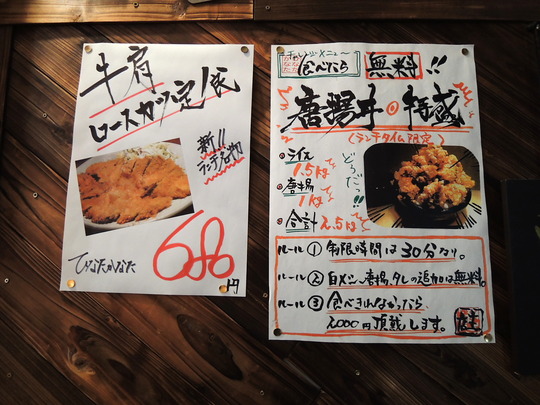 牛肩
ロースカツ定食
新!!
ランチ名物
ひなたかなた
680
円
チャレンジメニュ〜
食べれたら
無料!!
唐揚丼。特盛
(ランチタイム限定)
ライス
1.5kg
唐揚
1kg
合計 2.5kg
どうだっ!!
ルール① 制限時間は30分なり。
ルール② 白メシ、唐揚、タレの追加は無料。
ルール③ 食べきれなかったら
2,000円頂戴します。
店主